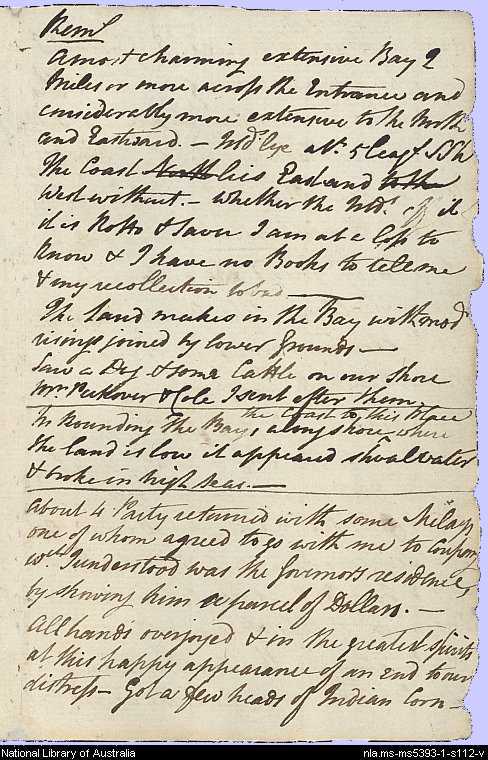 Reml
A most charming extensive Bay 2
Miles or more across the Entrance and
considerably more extensive to the North
and Eastward. — a No. 5 leags. SSW
The Coast lies East and
West without. — Whether the it
it is Rotto & Savu I am at a loss to
Know & I have no Books to tell me
& my recollection to bad
The Land makes in the Bay with mod
risings joined by lower grounds —
Saw a Dog & some Cattle on our Shore
Mr Peckover & Cole I sent after them.
the Coast to this place
In Rounding the Bay, along shore where
the land is low it appeared shoal water
& broke in high Seas. —
About 4 Party returned with some Melays
one of whom agreed to go with me to Coupang
wch. I understood was the Governors residence,
by showing him a parcel of Dollars. —
All hands overjoyed & in the greatest spirits
at this happy appearance of an End to our
distress — Got a few heads of Indian Corn —
National Library of Australia
nla.ms-ms5393-1-s112-v